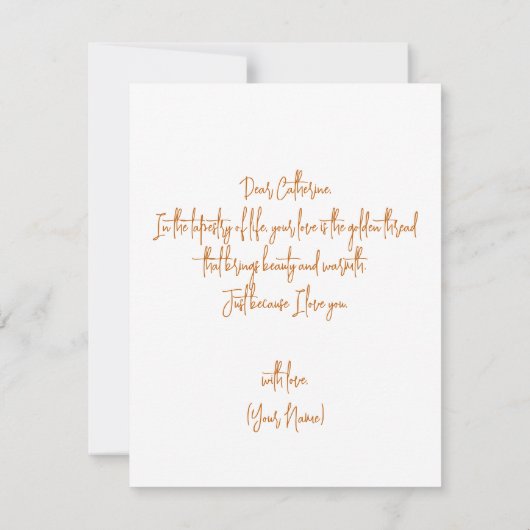 Dear Catherine,
In the tapestry of life, your love is the golden thread
that brings beauty and warmth.
Just because I love you.
with love,
(Your Name)